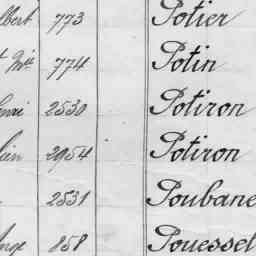 lbert 773 Potier
774 Potin
enri 2530 Potiron
2954 Potiron
2531 Poubane
Ange 858 Pouessel